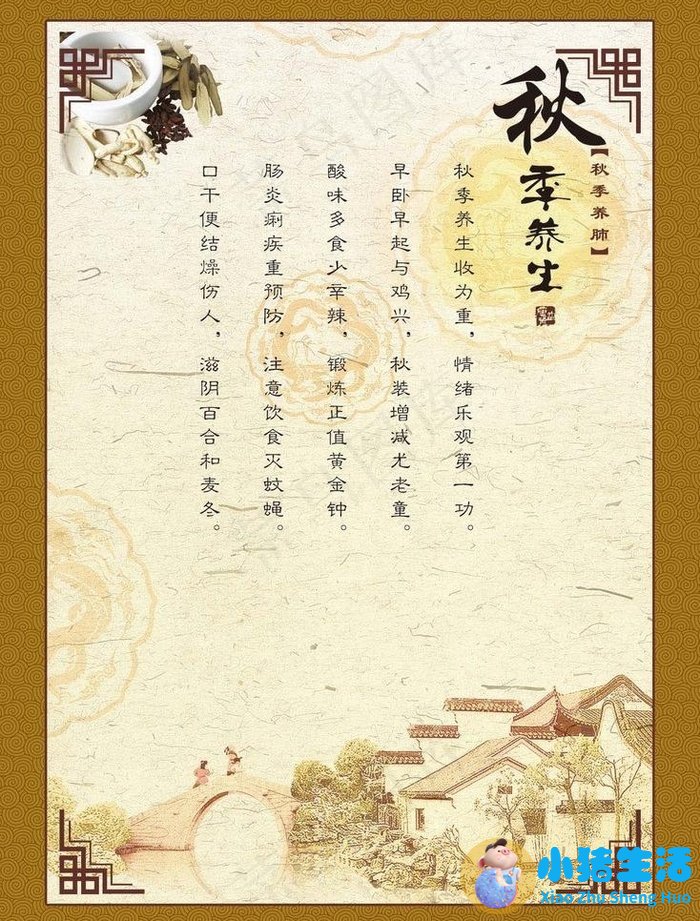 秋季养生
【秋季养肺】
秋季养生收为重，情绪乐观第一功。
早卧早起与鸡兴，秋装增减尤老童。
酸味多食少辛辣，锻炼正值黄金钟。
肠炎痢疾重预防，注意饮食灭蚊蝇。
口干便结燥伤人，滋阴百合和麦冬。
小猪生活
Xiao Zhu Sheng Huo